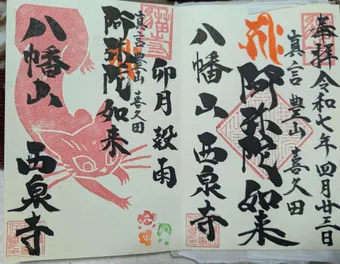 奉拝
令和七年四月廿三日
真言 豊山 喜久田
阿弥陀如来
八幡山 西泉寺
卯月 穀雨
真言 豊山 喜久田
阿弥陀如来
八幡山 西泉寺